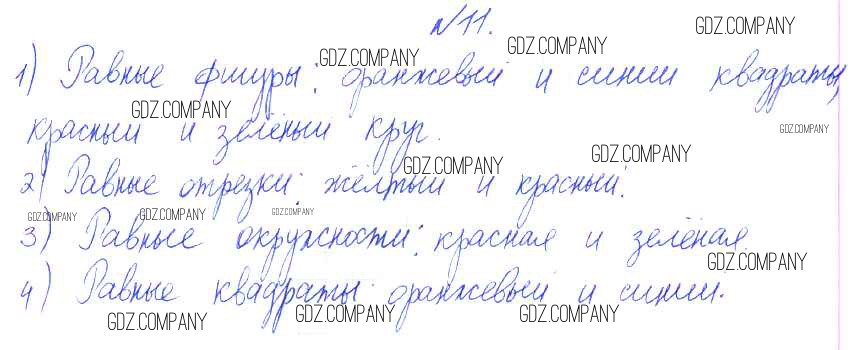 №11.
1) Равные фигуры: оранжевый и синий квадраты,
красный и зелёный круг.
2) Равные отрезки: жёлтый и красный.
3) Равные окружности: красная и зелёная.
4) Равные квадраты: оранжевый и синий.
GDZ.COMPANY
GDZ.COMPANY
GDZ.COMPANY
GDZ.COMPANY
GDZ.COMPANY
GDZ.COMPANY
GDZ.COMPANY
GDZ.COMPANY
GDZ.COMPANY
GDZ.COMPANY
GDZ.COMPANY
GDZ.COMPANY
GDZ.COMPANY
GDZ.COMPANY